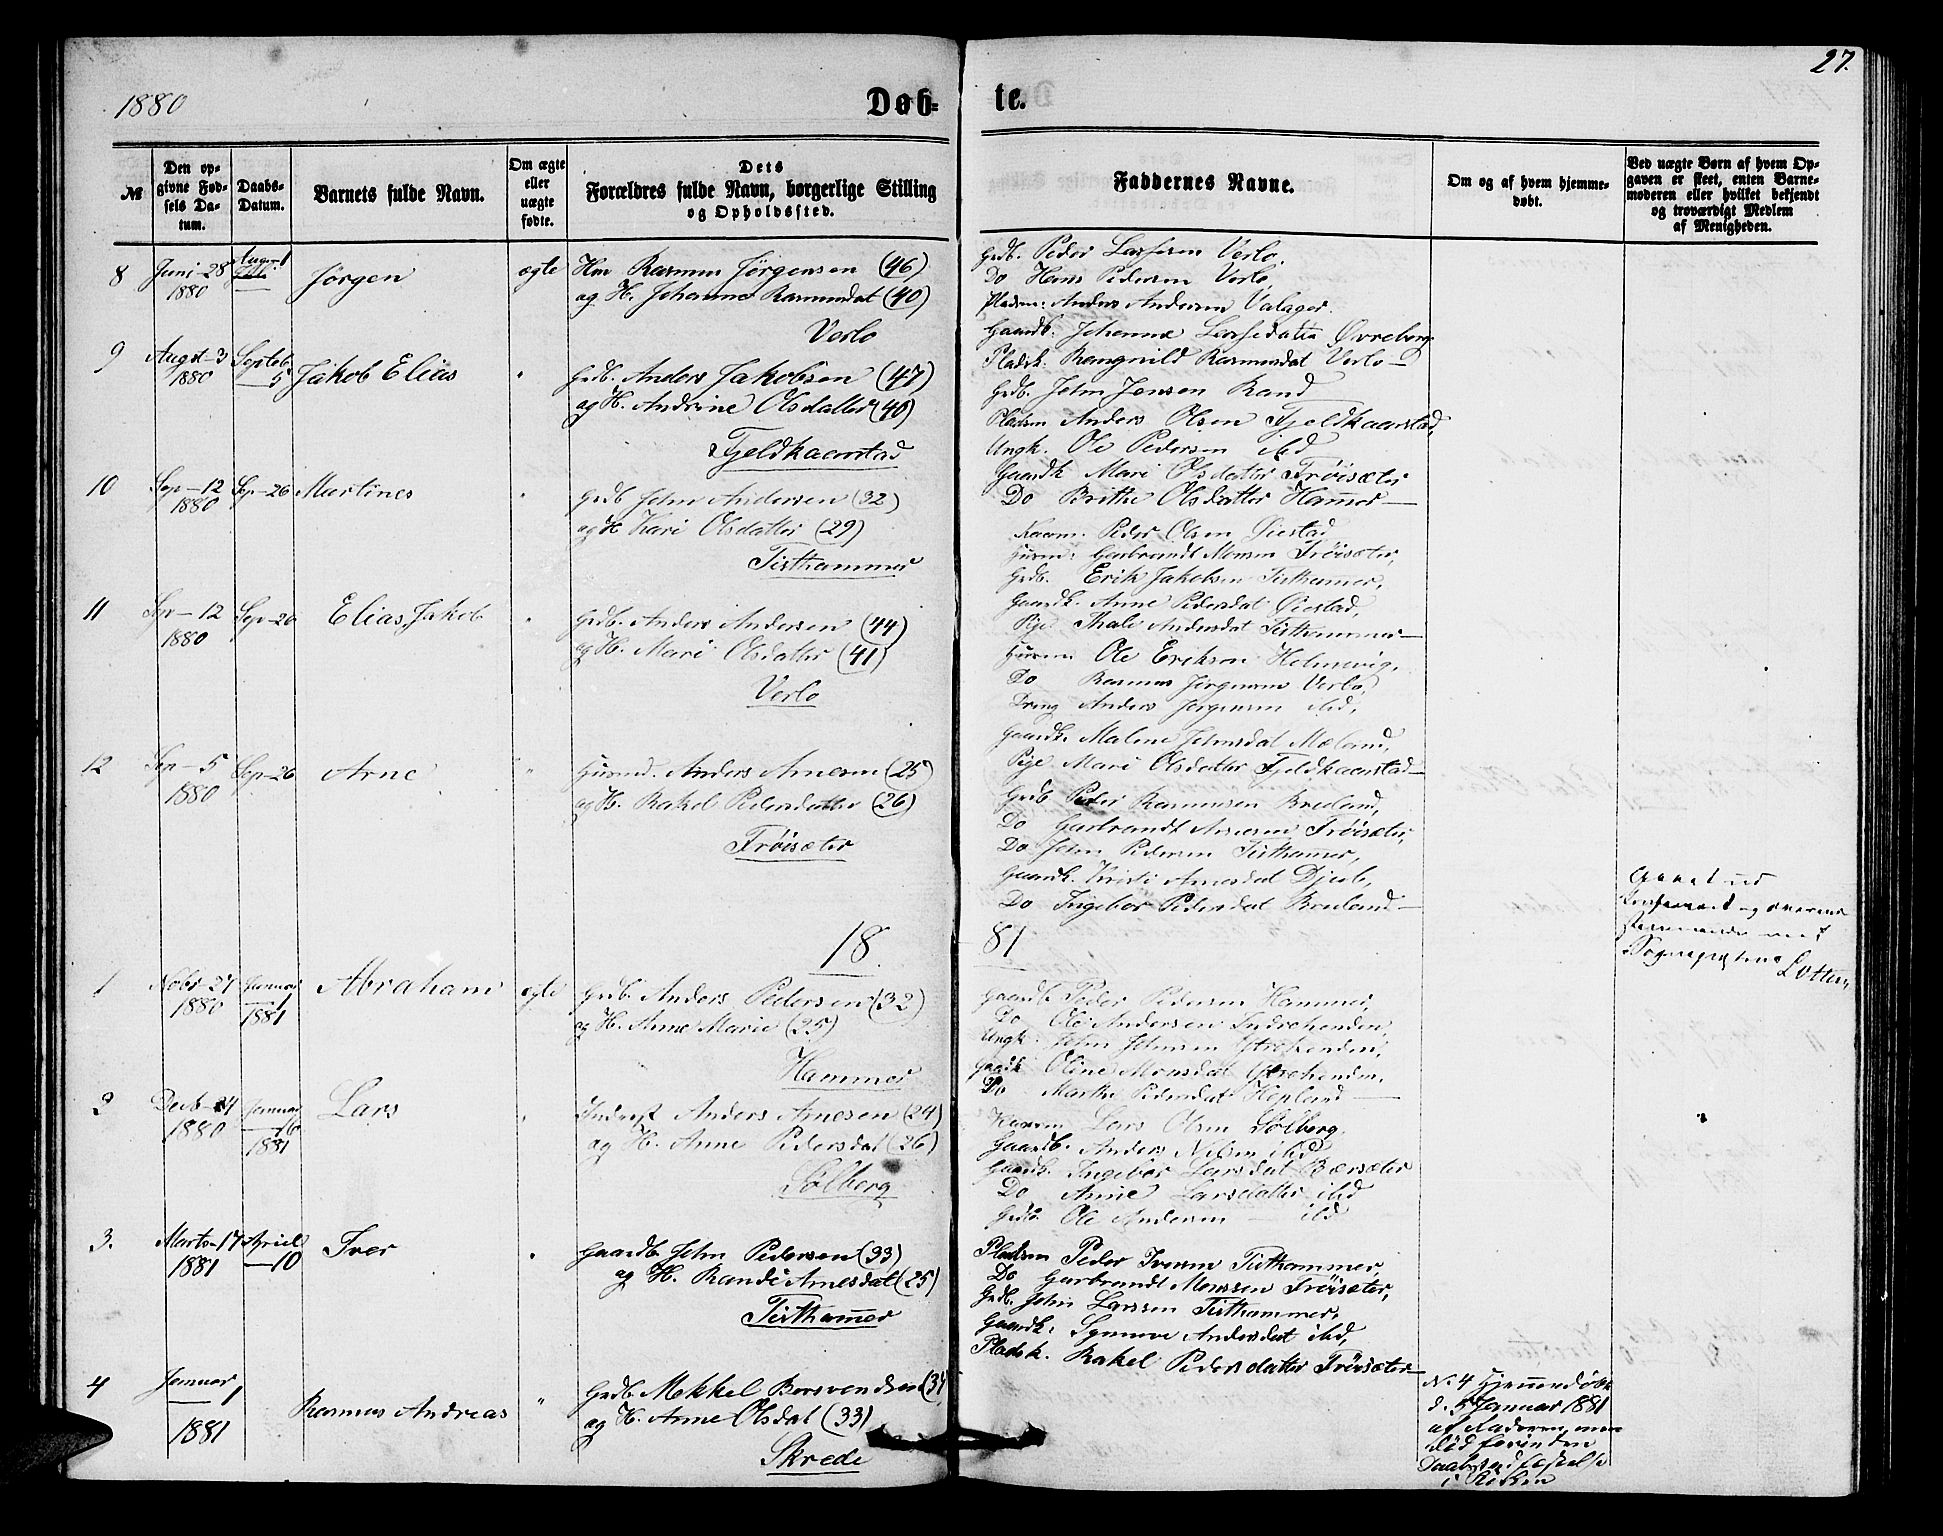 27.
1880
Døb-
te.
№
Den op-
givne Fød-
sels Da-
tum.
Daabs-
Datum.
Barnets fulde Navn.
Om ægte
eller
uægte
fødte.
Dets
Forældres fulde Navn, borgerlige Stilling
og Opholdssted.
Faddernes Navne.
Om og af hvem hjemme-
døbt.
Ved uægte Børn af hvem Op-
gaven er skeet, enten Barne-
moderen eller hvilket bekjendt
og troværdigt Medlem
af Menigheden.
8 Juni-28 1880 August 1 Jørgen ægte
Hm Rasmus Jørgensen (46)
og H. Johanne Rasmusdat (40)
Verlo
Grdb. Peder Larssen Verlo,
Do Hans Pedersen Verlo,
Pladsm. Anders Andersen Valager.
Gaardk. Johanne Larsedatter Øvreberg
Pladsk. Rangnild Rasmusdat Verlo—
9 Augst-3 1880 Septeb 5 Jakob Elias "
Grdb. Anders Jakobsen (47)
og H. Andrine Olsdatter (40)
Fjeldkaarstad
Grdb. John Jensen Rand
Pladsm Anders Olsen Fjeldkaarstad,
Ungk. Ole Pedersen ibd
Gaardk Mari Olsdatter Frøisæter
Do Brithe Olsdatter Hamer—
10 Sep-12 1880 Sep-26 Martines "
Grdb John Andersen (32)
og H Kari Olsdatter (29)
Tisthammer
Kaarm. Peder Olsen Øiestad
Husm. Garbrandt Monsen Frøisæter,
Grdb. Erik Jakobsen Tisthamer,
Gaardk. Anne Pedersdat Øiestad,
Pige Thale Andersdat Tisthammer—
11 Sep-12 1880 Sep-26 Elias Jakob "
Grdb. Anders Andersen (44)
og H. Mari Olsdatter (41)
Verlo
Husm. Ole Eriksen Holmevig,
Do Rasmus Jørgensen Verlo,
Dreng Anders Jørgensen ibd,
Gaardk. Malene Johnsdat Mæland,
Pige Mari Olsdatter Fjeldkaarstad—
12 Sep-5 1880 Sep-26 Arne "
Husmd. Anders Arnesen (25)
og H. Rakel Pedersdatter (26)
Frøisæter
Grdb Peder Rasmusen Breland,
Do Garbrandt Arnesen Frøisæter,
Do John Pedersen Tisthamer,
Gaardk. Kristi Arnesdat Djub,
Do Ingebor Pedersdat Breland—
18 81
1 Nobr-27 1880 Januar 1 1881 Abraham ægte
Grdb. Anders Pedersen (32)
og H. Anne Marie (25)
Hammer
Gaardb. Peder Pedersen Hammer,
Do Ole Andersen Indrehenden,
Ungk. John Johnsen Ytrehenden,
Gaardk Oline Monsdat Ytrehenden.
Do Marthe Pedersdat Hopland—
2 Decb-24 1880 Januar 16 1881 Lars "
Anders Arnesen (24)
og H. Anne Pedersdat (26)
Sølberg
Kaarm Lars Olsen Sølberg.
Gaardb. Anders Nilsen ibd
Gaardk. Ingebor Larsdat Bærsæter
Do Anne Larsdatter ibd
Grdb. Ole Andersen — ibd
3. Marts-17 1881 Apriel 10 Iver "
Gaardb. John Pedersen (33)
og H. Randi Arnesdat (25)
Tisthamer
Pladsm Peder Iversen Tisthammer,
Do Garbrandt Monssen Frøisæter,
Grdb. John Larssen Tisthammer,
Gaardk. Synneve Andersdat ibd,
Pladsk. Rakel Pedersdatter Frøisæter—
4 Januar 1 1881 Rasmus Andreas "
Grdb. Mekkel Børsvendsen (34
og H. Anne Olsdat (33)
Skrede
N. 4 Hjemmedøbt
d. 5 Januar 1881
af Faderen, men
død forinden
Daabens
i Kirken